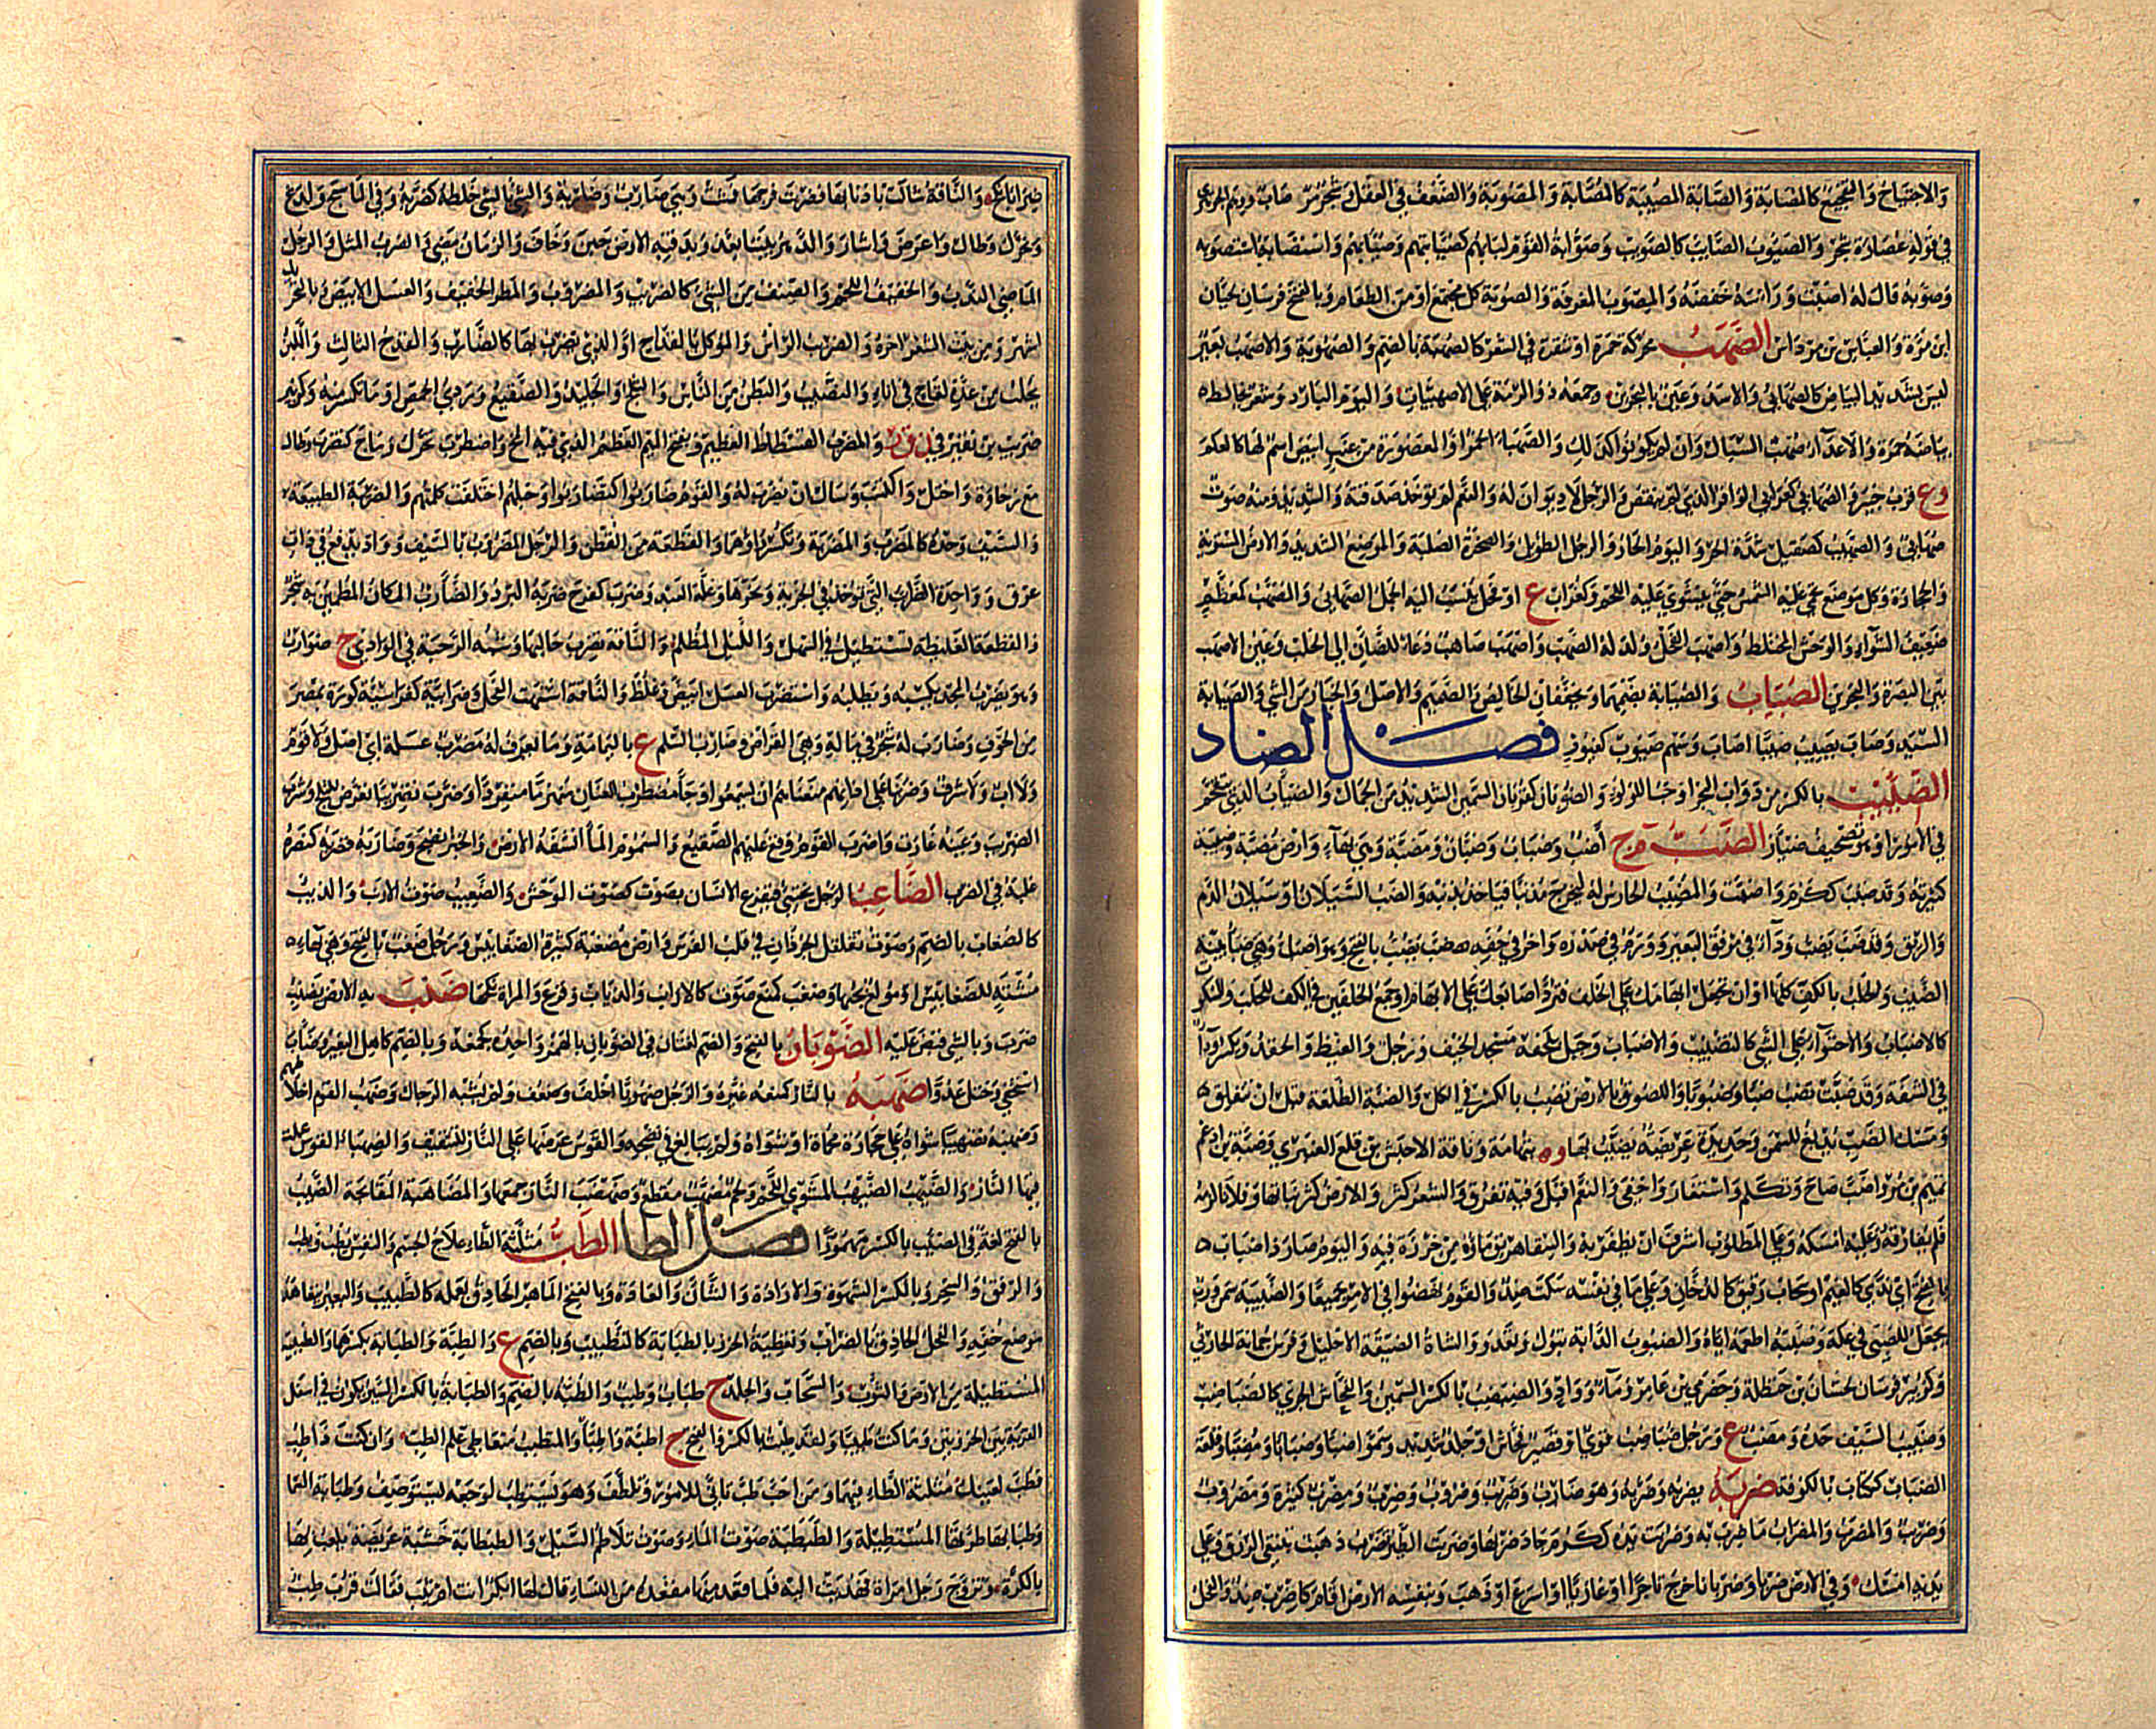 والاحتياج والتفجيع كالمصابة والصابة المصيبة كالمصابة والمصوبة والضعف في العقل وشجر مر
في قوله عصارة شجر والصيوب الصائب كالصويب وصوابة القوم لبابهم كصيابتهم وصيابهم واستصابه استصوبه
وصوبه قال له اصبت وراسه خفضه والمصوب المغرفة والصوبة كل مجتمع او من الطعام وبالفتح فرسان لحسان
ابن مرة والعباس بن مرداس الصهب محركة حمرة او شقرة في الشعر كالصهبة بالضم والصهوبة والاصهب بعير
ليس بشديد البياض كالصهابي والاسد وعين بالبحرين وجمعه ذو الرمة على الاصهبيات واليوم البارد وشعر يخالط
بياضه حمرة والاعداء صهب السبال وان لم يكونوا كذلك والصهباء الخمر او المعصورة من عنب ابيض اسم لها كالعلم
وع قرب خيبر والصهابي كغرابي الوافر الذي لم ينقص والرجل لا ديوان له والنعم لم توخذ صدقته والشديد ومنه موت
صهابي والصيهب كصيقل شدة الحر واليوم الحار والرجل الطويل والصخرة الصلبة والموضع الشديد والارض المستوية
والحجارة وكل موضع تحمى عليه الشمس حتى ينشوي عليه اللحم وكغراب ع او فحل ينسب اليه الجمل الصهابي والمصهب كمعظم
صفيف الشواء والوحش المختلط واصهب الفحل ولد له الصهب واصهب صاهب دعاء للضان الى الحلب وعين الاصهب
بين البصرة والبحرين الصياب والصيابة بضمهما ويخففان الخالص والصميم والاصل والخيار من الشي والصيابة
السيد وصاب يصيب صيبا اصاب وسهم صيوب كغيور فصل الضاد
الضئيب بالكسر من دواب البحر او حب اللؤلؤ والضؤبان كعثمان السمين الشديد من الجمال والضياب الذي يتقحم
في الامور او هو تصحيف ضياز الضب م ج اضب وضباب وضبان ومضبة وهي بهاء وارض مضبة وضببة
كثيرته وقد ضبب ككرم واضبت والمضبب الحارش له ليخرج مذنبا فياخذ بذنبه والضب السيلان او سيلان الدم
والريق وقد ضب يضب وداء في مرفق البعير وورم في صدره واخر في خفه ضب يضب بالفتح وهو اضب وهي ضباء بينة
الضبب والحلب بالكف كلها او ان تجعل ابهامك على الخلف فترد اصابعك على الابهام او جمع الخلفين في الكف للحلب والسكوت
كالاضباب والاحتواء على الشي كالتضبيب والاضباب وجبل بلحفه مسجد الخيف ورجل والغيظ والحقد ويكسر وداء
في الشفة وقد ضبت تضب ضبا وضبوبا واللصوق بالارض يضب بالكسر في الكل والضبة الطلعة قبل ان تنفلق
ومسك الضب يدبغ للسمن وحديدة عريضة يضبب بها و ه بتهامة وناقة الاحبش بن قلع العنبري وضبة بن اد عم
تميم بن مر واضب صاح وتكلم واستغار واخفى والنعم اقبل وفيه تفرق والشعر كثر والارض كثر نباتها وفلانا لزمه
فلم يفارقه وعليه امسكه وعلى المطلوب اشرف ان يظفر به والسقاء هريق ماؤه من خرزة فيه واليوم صار ذا ضباب
بالفتح اي ندى كالغيم او سحاب رقيق كالدخان وعلى ما في نفسه سكت ضد والقوم نهضوا في الامر جميعا والضبيبة سمن ورب
يجعل للصبي في عكة وضببه اطعمه اياه والضبوب الدابة تبول وتعدو والشاة الضيقة الاحليل وفرس جمانة الحارثي
وكزبير فرسان لحسان بن حنظلة وحضرمي بن عامر وماء وواد والضبضب بالكسر السمين والفحاش الجري كالضباضب
وضبيب السيف حده ومضب ع ورجل ضباضب قوي او قصير فحاش او جلد شديد وسموا ضبا وضبابا ومضبا وقلعة
الضباب ككتاب بالكوفة ضربه يضربه وضربه وهو ضارب وضريب وضروب وضرب ومضرب كثيره ومضروب
وضريب والمضرب والمضراب ما ضرب به وضربت يده ككرم جاد ضربها وضربت الطير تضرب ذهبت تبتغي الرزق وعلى
يديه امسك وفي الارض ضربا وضربانا خرج تاجرا او غازيا او اسرع او ذهب وبنفسه الارض اقام كاضرب ضد والفحل
ضرابا نكح والناقة شالت بذنبها فضربت فرجها فمشت وهي ضارب وضاربة والشي بالشي خلطه كضربه وفي الماء سبح ولدغ
وتحرك وطال واعرض واشار والدهر بيننا بعد وبذقنه الارض جبن وخاف والزمان مضى والضرب المثل والرجل
الماضي الندب والخفيف اللحم والصنف من الشي كالضريب والمضروب والمطر الخفيف والعسل الابيض بالتحريك
اشهر ومن بيت الشعر اخره والضريب الراس والموكل بالقداح او الذي يضرب بها كالضارب والقدح الثالث واللبن
يحلب من عدة لقاح في اناء والنصيب والبطن من الناس والثلج والجليد والصقيع وردي الحمض او ما تكسر منه وكزبير
ضريب بن نقير في ن ق ر والمضرب الفسطاط العظيم وبفتح الميم العظم الذي فيه المخ واضطرب تحرك وماج كتضرب وطال
مع رخاوة واختل واكتسب وسال ان يضرب له والقوم ضاربوا كتضاربوا وحبلهم اختلفت كلمتهم والضريبة الطبيعة
والسيف وحده كالمضرب والمضربة وتكسر راؤهما والقطعة من القطن والرجل المضروب بالسيف وواد يدفع في ذات
عرق و واحدة الضرائب التي توخذ في الجزية ونحوها وغلة العبد وضرب كفرح ضربه البرد والضارب المكان المطمئن به شجر
والقطعة الغليظة تستطيل في السهل والليل المظلم والناقة تضرب حالبها وشبه الرحبة في الوادي ج ضوارب
وهو يضرب المجد يكسبه ويطلبه واستضرب العسل ابيض وغلظ والناقة اشتهت الفحل وضرابية كقراسية كورة بمصر
من الحوف وضارب له تجر في ماله وهي القراض وضارب السلم ع باليمامة وما يعرف له مضرب عسلة اي اصل ولا قوم
ولا اب ولا شرف وضربنا على اذانهم منعناهم ان يسمعوا وجاء مضطرب العنان منهزما منفردا وضرب تضريبا تعرض للثلج وشرب
الضريب وعينه غارت واضرب القوم وقع عليهم الصقيع والسموم الماء انشفه الارض والخبز نضج وضاربه فضربه كنصره
غلبه في الضرب الضاعب الرجل يختبئ فيفزع الانسان بصوت كصوت الوحش والضغيب صوت الارنب والذيب
كالضغاب بالضم وصوت تقلقل الجردان في قنب الفرس وارض مضغبة كثيرة الضغابيس ورجل ضغب بالفتح وهي بهاء
مشتهي للضغابيس او مولع بحبها وضغب كمنع صوت كالارانب والذياب وفزع والمراة نكحها ضنب به الارض يضنب
ضرب وبالشي قبض عليه الضوبان بالفتح والضم لغتان في الضوبان بالهمز واحده كجمعه وبالضم كاهل البعير وضاب
استخفى وختل عدوا ضهبه بالنار كمنعه غيره والرجل ضهوبا اخلف وضعف ولم يشبه الرجال وضهب القوم اخلاطهم
وضهبه تضهيبا شواه على حجارة محماة او شواه ولم يبالغ في نضجه والقوس عرضها على النار للتثقيف والضهباء القوس عملت
فيها النار والضيهب الضيهب المشوي اللحم ولحم مضهب مقطع وضهضب النار جمعها والمضاهبة المقابحة الضيب
بالفتح لغة في الضئب بالكسر مهموزا فصل الطاء الطب مثلثة الطاء علاج الجسم والنفس يطب ويطب
والرفق والسحر وبالكسر الشهوة والارادة والشان والعادة وبالفتح الماهر الحاذق بعمله كالطبيب والبعير يتعاهد
موضع خفه والفحل الحاذق بالضراب وتغطية الخرز بالطبابة كالتطبيب وبالضم ع والطبة والطبابة بكسرهما والطبيبة
المستطيلة من الارض والثوب والسحاب والجلد ج طباب وطبب والطبة بالضم والطبابة بالكسر السير يكون في اسفل
القربة بين الخرزتين وما كنت طبيبا ولقد طببت بالكسر والفتح ج اطبة واطباء والمتطبب متعاطي علم الطب وان كنت ذا طب
فطب لعينك مثلثة الطاء فيهما ومن احب طب تانى للامور وتلطف وهو يستطب لوجعه يستوصف وطبابة السماء
وطبابها طرتها المستطيلة والطبطبة صوت الماء وصوت تلاطم السيل والطبطابة خشبة عريضة يلعب بها
بالكرة وتزوج رجل امراة فهديت اليه فلما قعد منها مقعده من النساء قال لها ابكر انت ام ثيب فقالت قرب طب